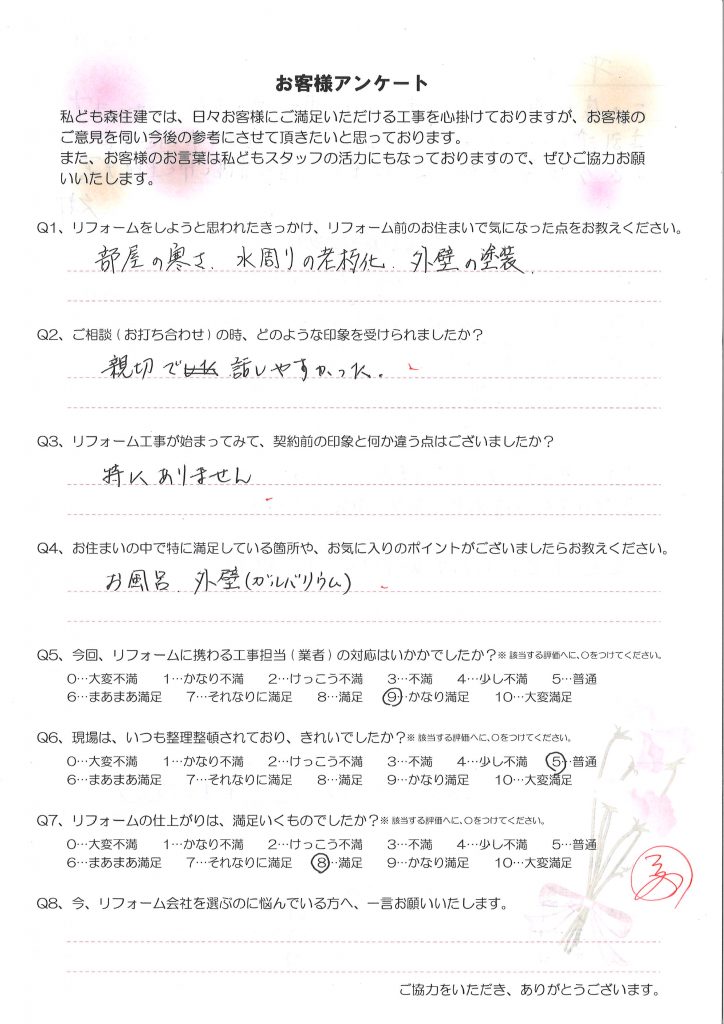 お客様アンケート
私ども森住建では、日々お客様にご満足いただける工事を心掛けておりますが、お客様の
ご意見を伺い今後の参考にさせて頂きたいと思っております。
また、お客様のお言葉は私どもスタッフの活力にもなっておりますので、ぜひご協力お願
いいたします。
Q1、リフォームをしようと思われたきっかけ、リフォーム前のお住まいで気になった点をお教えください。
部屋の寒さ. 水周りの老朽化. 外壁の塗装.
Q2、ご相談(お打ち合わせ)の時、どのような印象を受けられましたか？
親切で 話しやすかった。
Q3、リフォーム工事が始まってみて、契約前の印象と何か違う点はございましたか？
特にありません
Q4、お住まいの中で特に満足している箇所や、お気に入りのポイントがございましたらお教えください。
お風呂. 外壁(ガルバリウム)
Q5、今回、リフォームに携わる工事担当(業者)の対応はいかかでしたか？※該当する評価へに、○をつけてください。
0…大変不満 1…かなり不満 2…けっこう不満 3…不満 4…少し不満 5…普通
6…まあまあ満足 7…それなりに満足 8…満足 9…かなり満足 10…大変満足
Q6、現場は、いつも整理整頓されており、きれいでしたか？※該当する評価へに、○をつけてください。
0…大変不満 1…かなり不満 2…けっこう不満 3…不満 4…少し不満 5…普通
6…まあまあ満足 7…それなりに満足 8…満足 9…かなり満足 10…大変満足
Q7、リフォームの仕上がりは、満足いくものでしたか？※該当する評価へに、○をつけてください。
0…大変不満 1…かなり不満 2…けっこう不満 3…不満 4…少し不満 5…普通
6…まあまあ満足 7…それなりに満足 8…満足 9…かなり満足 10…大変満足
Q8、今、リフォーム会社を選ぶのに悩んでいる方へ、一言お願いいたします。
ご協力をいただき、ありがとうございます。